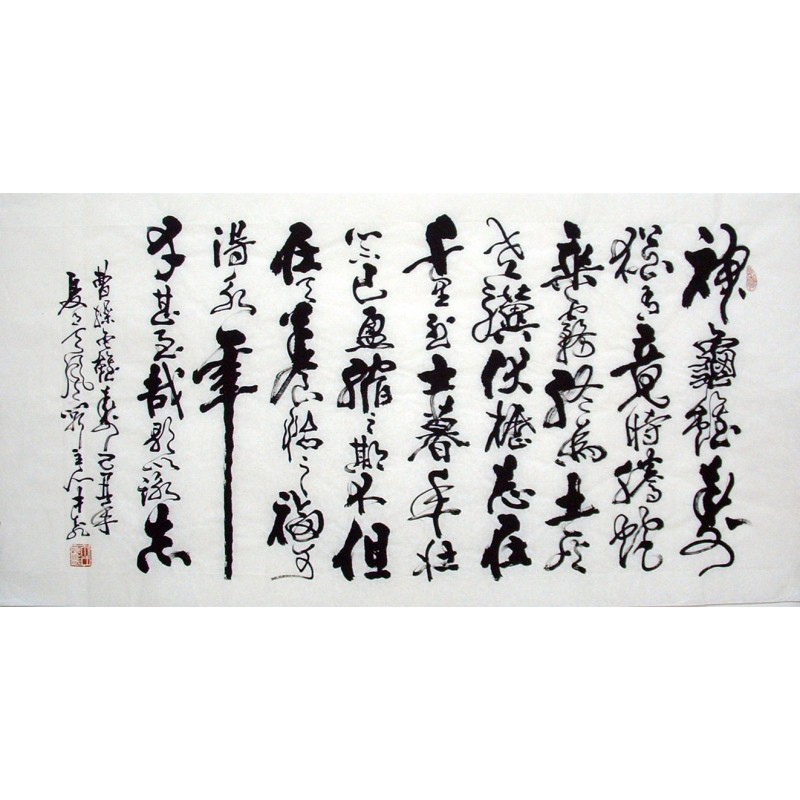 神龜雖壽
猶有竟時騰蛇
乘霧終為土灰
老驥伏櫪志在
千里烈士暮年壯
心不已盈縮之期不但
在天養怡之福可
得永年
幸甚至哉歌以詠志
曹操龜雖壽己丑年
夏